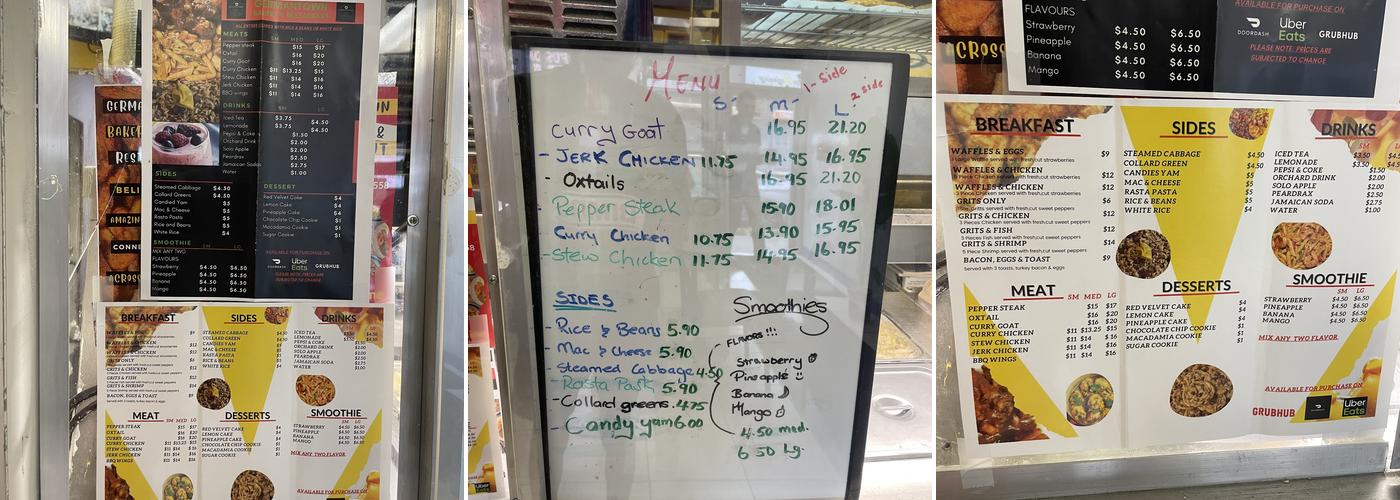 GERMANTOWN
ALL ENTREES COMES WITH RICE & BEANS OR WHITE RICE
MEATS SM MED LG
Pepper steak $15 $17
Oxtail $16 $20
Curry Goat $16 $20
Curry Chicken $11 $13.25 $15
Stew Chicken $11 $14 $16
Jerk Chicken $11 $14 $16
BBQ wings $11 $14 $16
DRINKS
SM LG
Iced Tea $3.75 $4.50
Lemonade $3.75 $4.50
Pepsi & Coke $1.50
Orchard Drink $2.00
Solo Apple $2.00
Peardrax $2.50
Jamaican Sodas $2.75
Water $1.00
SIDES
Steamed Cabbage $4.50
Collard Greens $4.50
Candied Yam $5
Mac & Cheese $5
Rasta Pasta $5
Rice and Beans $5
White Rice $4
DESSERT
Red Velvet Cake $4
Lemon Cake $4
Pineapple Cake $4
Chocolate Chip Cookie $1
Macadamia Cookie $1
Sugar Cookie $1
SMOOTHIE SM LG
MIX ANY TWO
FLAVOURS
Strawberry $4.50 $6.50
Pineapple $4.50 $6.50
Banana $4.50 $6.50
Mango $4.50 $6.50
AVAILABLE FOR PURCHASE ON
DOORDASH Uber Eats GRUBHUB
PLEASE NOTE: PRICES ARE
SUBJECTED TO CHANGE
GERMA
BAKER
RES
BELI
AMAZIN
CONNE
ACROS
BREAKFAST
SIDES
DRINKS
MEAT
DESSERTS
SMOOTHIE
MIX ANY TWO FLAVOR
AVAILABLE FOR PURCHASE ON
MENU
1-Side
2 side
S- m- L-
Curry Goat 16.95 21.20
- JERK CHICKEN 11.75 14.95 16.95
- Oxtails 16.95 21.20
- Pepper Steak 15.90 18.01
Curry Chicken 10.75 13.90 15.95
- Stew Chicken 11.75 14.95 16.95
SIDES
- Rice & Beans 5.90
- Mac & Cheese 5.90
- Steamed Cabbage 4.50
- Rasta Pasta 5.90
- Collard greens 4.75
- Candy yam 6.00
Smoothies
FLAVORS !!!
Strawberry
Pineapple
Banana
Mango
4.50 med.
6.50 Lg.
ACROSS
FLAVOURS
Strawberry $4.50 $6.50
Pineapple $4.50 $6.50
Banana $4.50 $6.50
Mango $4.50 $6.50
AVAILABLE FOR PURCHASE ON
DOORDASH Uber Eats GRUBHUB
PLEASE NOTE: PRICES ARE
SUBJECTED TO CHANGE
BREAKFAST
WAFFLES & EGGS $9
WAFFLES & CHICKEN $12
WAFFLES & CHICKEN $12
GRITS ONLY $6
GRITS & CHICKEN $12
3 Pieces Chicken served with fresh,cut sweet peppers
GRITS & FISH $12
3 Pieces Fish served with fresh,cut sweet peppers
GRITS & SHRIMP $14
5 Piece Shrimp served with fresh,cut sweet peppers
BACON, EGGS & TOAST $9
Served with 3 toasts, turkey bacon & eggs
SIDES
STEAMED CABBAGE $4.50
COLLARD GREEN $4.50
CANDIES YAM $5
MAC & CHEESE $5
RASTA PASTA $5
RICE & BEANS $5
WHITE RICE $4
DRINKS
SM LG
ICED TEA $3.50 $4.50
LEMONADE $3.50 $4.50
PEPSI & COKE $1.50
ORCHARD DRINK $2.00
SOLO APPLE $2.00
PEARDRAX $2.50
JAMAICAN SODA $2.75
WATER $1.00
MEAT SM MED LG
PEPPER STEAK $15 $17
OXTAIL $16 $20
CURRY GOAT $16 $20
CURRY CHICKEN $11 $13.25 $15
STEW CHICKEN $11 $14 $16
JERK CHICKEN $11 $14 $16
BBQ WINGS $11 $14 $16
DESSERTS
RED VELVET CAKE $4
LEMON CAKE $4
PINEAPPLE CAKE $4
CHOCOLATE CHIP COOKIE $1
MACADAMIA COOKIE $1
SUGAR COOKIE $1
SMOOTHIE
SM LG
STRAWBERRY $4.50 $6.50
PINEAPPLE $4.50 $6.50
BANANA $4.50 $6.50
MANGO $4.50 $6.50
MIX ANY TWO FLAVOR
AVAILABLE FOR PURCHASE ON
GRUBHUB Uber Eats